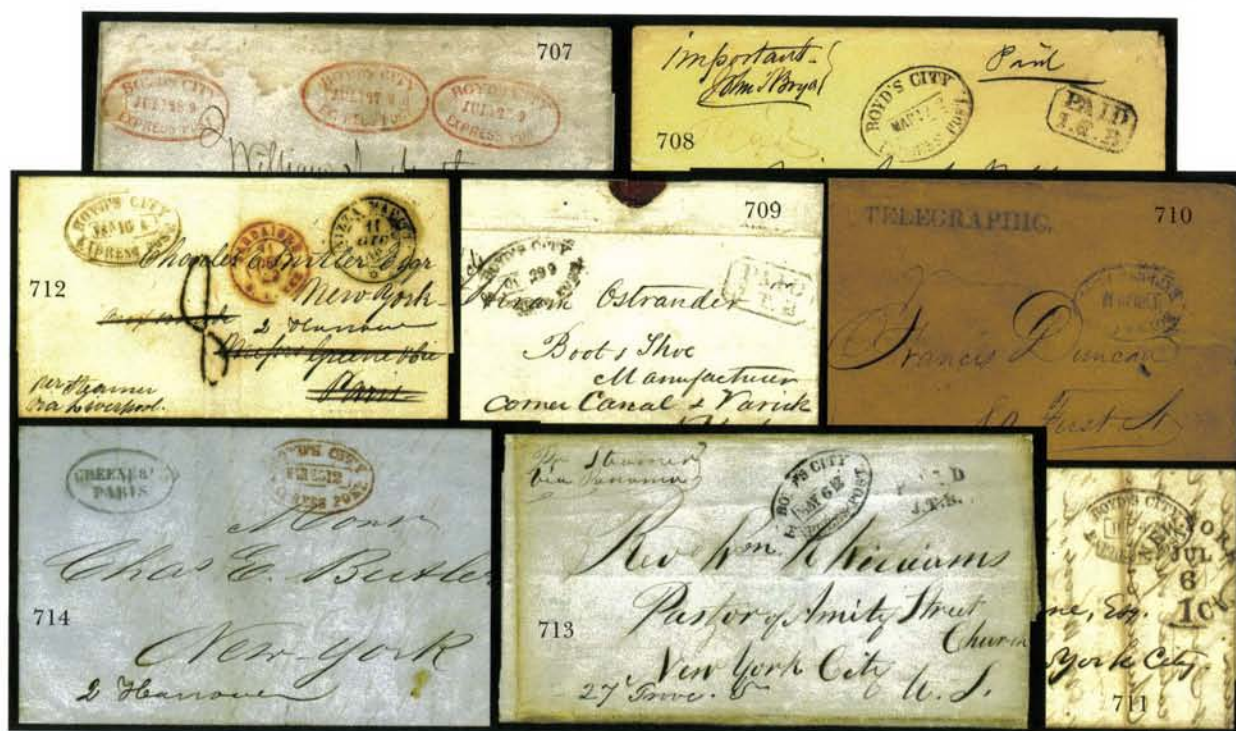 707
BOYD'S CITY
EXPRESS POST
BOYD'S CITY
EXPRESS POST
BOYD'S CITY
EXPRESS POST
William
important
John T Boyd
Paid
BOYD'S CITY
EXPRESS POST
PAID
J.T.B
708
BOYD'S CITY
EXPRESS POST
NIZZA
11
Charles E. Butler Esqr
New York
2 Hanover
Messrs Greene & Cie
Paris
per Steamer
via Liverpool.
712
709
BOYD'S CITY
EXPRESS POST
PAID
J.T.B
Hiram Ostrander
Boot & Shoe
Manufacturer
corner Canal & Varick
710
TELEGRAPHIC.
Francis Duncan
80 First St
GREENE &
PARIS
BOYD'S CITY
EXPRESS POST
Monr
Chas E. Butler
New-York
2 Hanover
714
pr Steamer
via Panama
BOYD'S CITY
MAY 6
EXPRESS POST
PAID
J.T.B.
Rev Wm R Williams
Pastor of Amity Street
Church
New York City
U.S.
27 Grove
713
BOYD'S CITY
EXPRESS
NEW-YORK
JUL
6
1 Ct.
ne, Esq.
York City.
711